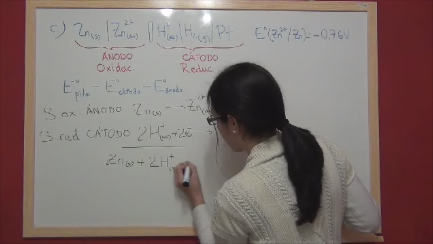 c) Zn(s) | Zn²⁺(ac) || H⁺(ac) | H₂(g) | Pt E°(Zn²⁺/Zn) = -0,76V
ÁNODO CÁTODO
Oxidac Reduc
E°pila = E°cátodo - E°ánodo
S ox ÁNODO Zn(s) → Zn
S red CÁTODO 2H⁺(ac) + 2e⁻ →
Zn(s) + 2H⁺